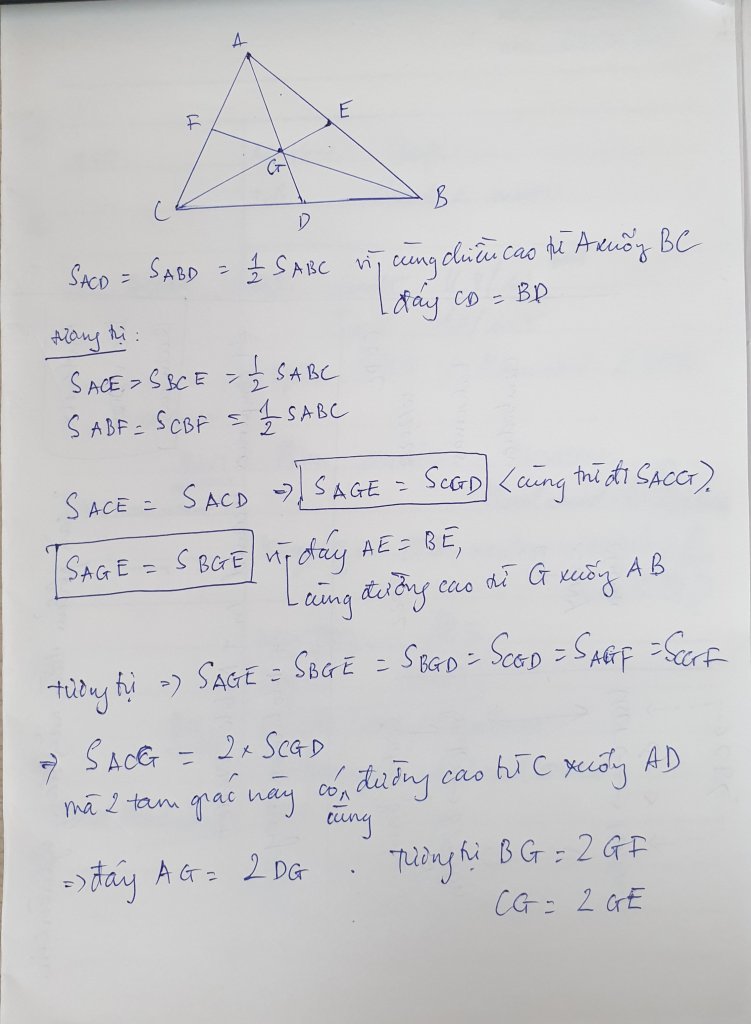 A
F
E
G
C
D
B
S_ACD = S_ABD = 1/2 S_ABC vì cùng chiều cao từ A xuống BC
đáy CD = BD
tương tự:
S_ACE = S_BCE = 1/2 S_ABC
S_ABF = S_CBF = 1/2 S_ABC
S_ACE = S_ACD => S_AGE = S_CGD (cùng trừ đi S_ACG).
S_AGE = S_BGE vì đáy AE = BE,
cùng đường cao từ G xuống AB
tương tự => S_AGE = S_BGE = S_BGD = S_CGD = S_AGF = S_CGF
=> S_ACG = 2 x S_CGD
mà 2 tam giác này có cùng đường cao từ C xuống AD
=> đáy AG = 2 DG . tương tự BG = 2 GF
CG = 2 GE